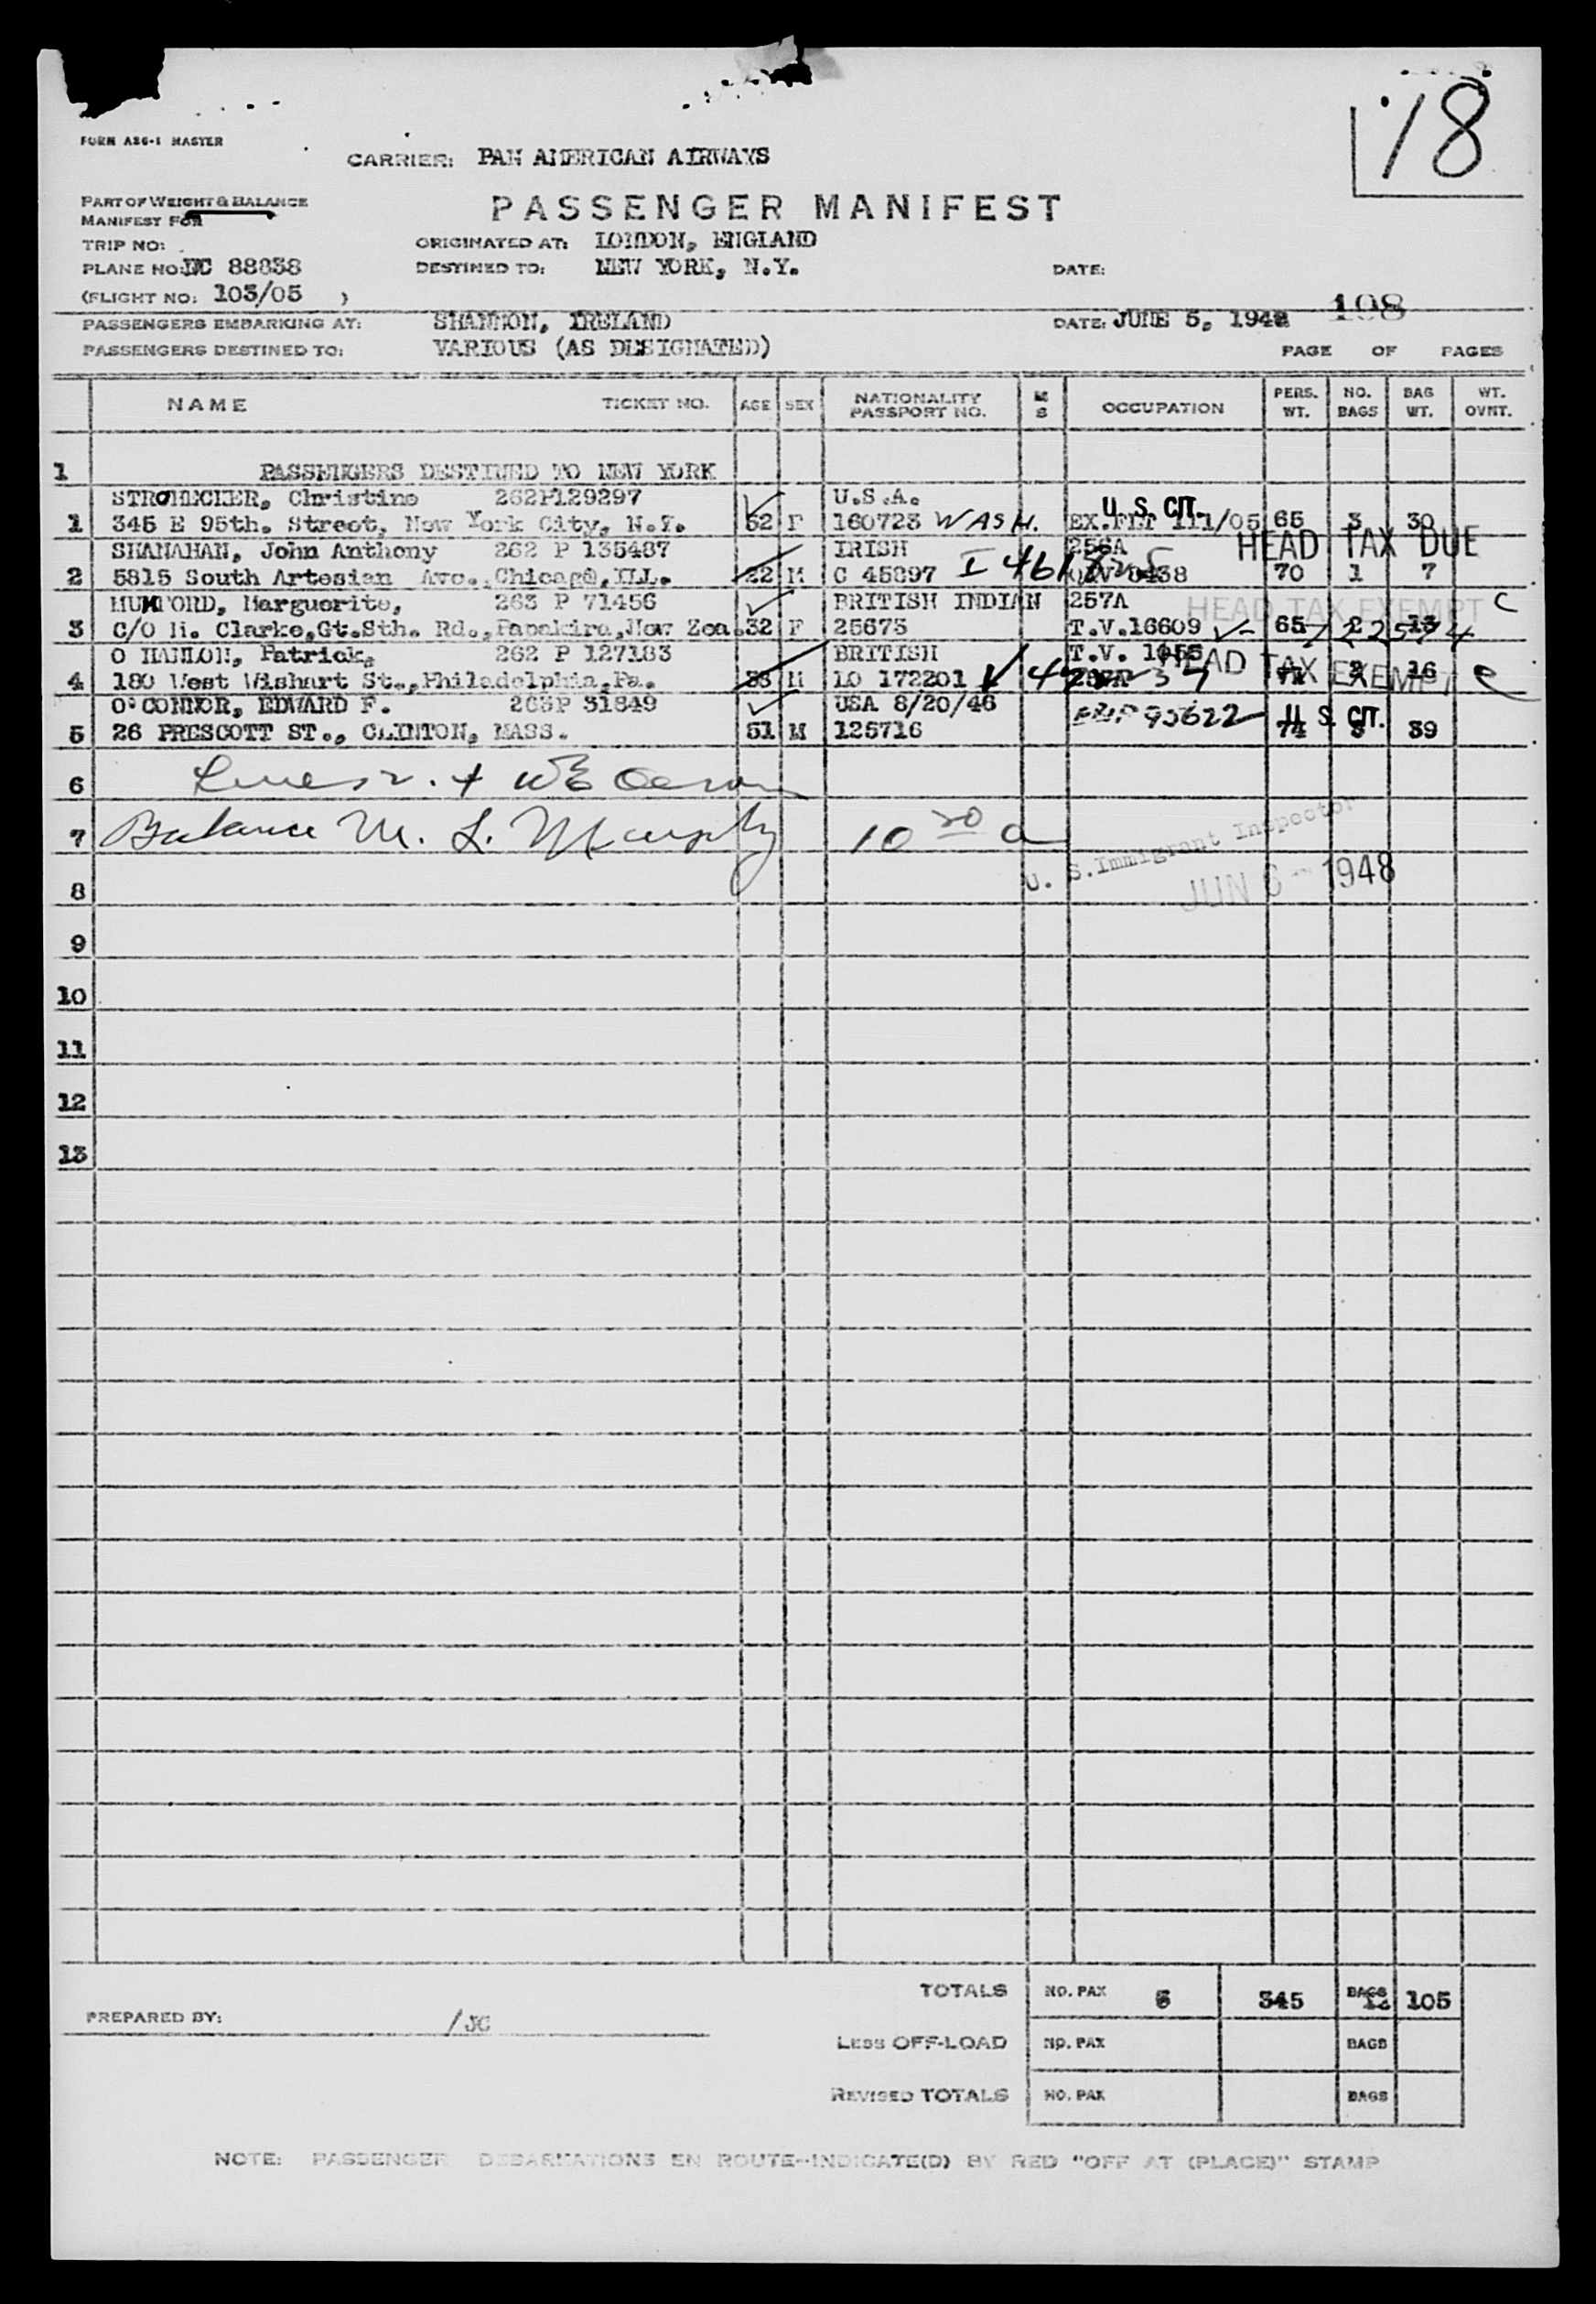 18
FORM A26-1 MASTER
CARRIER: PAN AMERICAN AIRWAYS
PART OF WEIGHT & BALANCE
MANIFEST FOR
PASSENGER MANIFEST
TRIP NO:
ORIGINATED AT: LONDON, ENGLAND
PLANE NO: NC 88838
DESTINED TO: NEW YORK, N.Y.
DATE:
(FLIGHT NO: 103/05 )
198
PASSENGERS EMBARKING AT: SHANNON, IRELAND
DATE: JUNE 5, 1948
PASSENGERS DESTINED TO: VARIOUS (AS DESIGNATED)
PAGE OF PAGES
NAME TICKET NO. AGE SEX NATIONALITY PASSPORT NO. M S OCCUPATION PERS. WT. NO. BAGS BAG WT. WT. OVNT.
1 PASSENGERS DESTINED TO NEW YORK
STROHECKER, Christine 262P129297 U.S.A. U. S. CIT.
1 345 E 95th. Street, New York City, N.Y. 52 F 160723 WASH. EX.FLT 111/05 65 3 30
SHANAHAN, John Anthony 262 P 135487 IRISH 256A HEAD TAX DUE
2 5815 South Artesian Ave., Chicago, ILL. 22 M C 45897 I 461 QIV 70 1 7
MUMFORD, Marguerite, 263 P 71456 BRITISH INDIAN 257A HEAD TAX EXEMPT C
3 C/O H. Clarke,Gt.Sth. Rd.,Papakira,New Zea. 32 F 25673 T.V.16609 65 2 13
O HANLON, Patrick, 262 P 127183 BRITISH T.V. HEAD TAX EXEMPT e
4 180 West Wishart St.,Philadelphia,Pa. 33 M LO 172201 16
O'CONNOR, EDWARD F. 263P 31849 USA 8/20/46 95622 U. S. CIT.
5 26 PRESCOTT ST., CLINTON, MASS. 51 M 125716 74 39
6 Lines 2. +
7 Balance M. L. Murphy 10 30 a
U. S. Immigrant Inspector
8
JUN 6 - 1948
9
10
11
12
13
TOTALS NO. PAX 5 345 BAGS 12 105
PREPARED BY: /JC
LESS OFF-LOAD NO. PAX BAGS
REVISED TOTALS NO. PAX BAGS
NOTE: PASSENGER DEBARKATIONS EN ROUTE--INDICATE(D) BY RED "OFF AT (PLACE)" STAMP